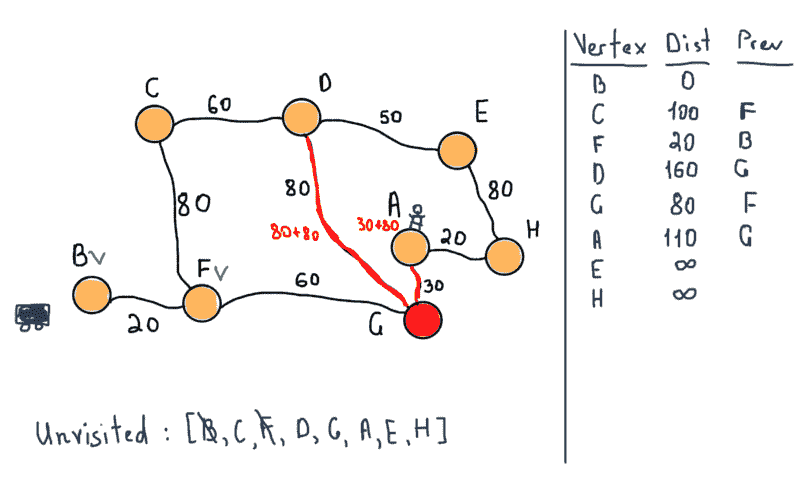 C
60
D
50
E
80
80
80
A
30+80
80+80
20
H
B v
F v
60
30
20
G
Unvisited : [B, C, F, D, G, A, E, H]
Vertex Dist Prev
B 0
C 100 F
F 20 B
D 160 G
G 80 F
A 110 G
E ∞
H ∞